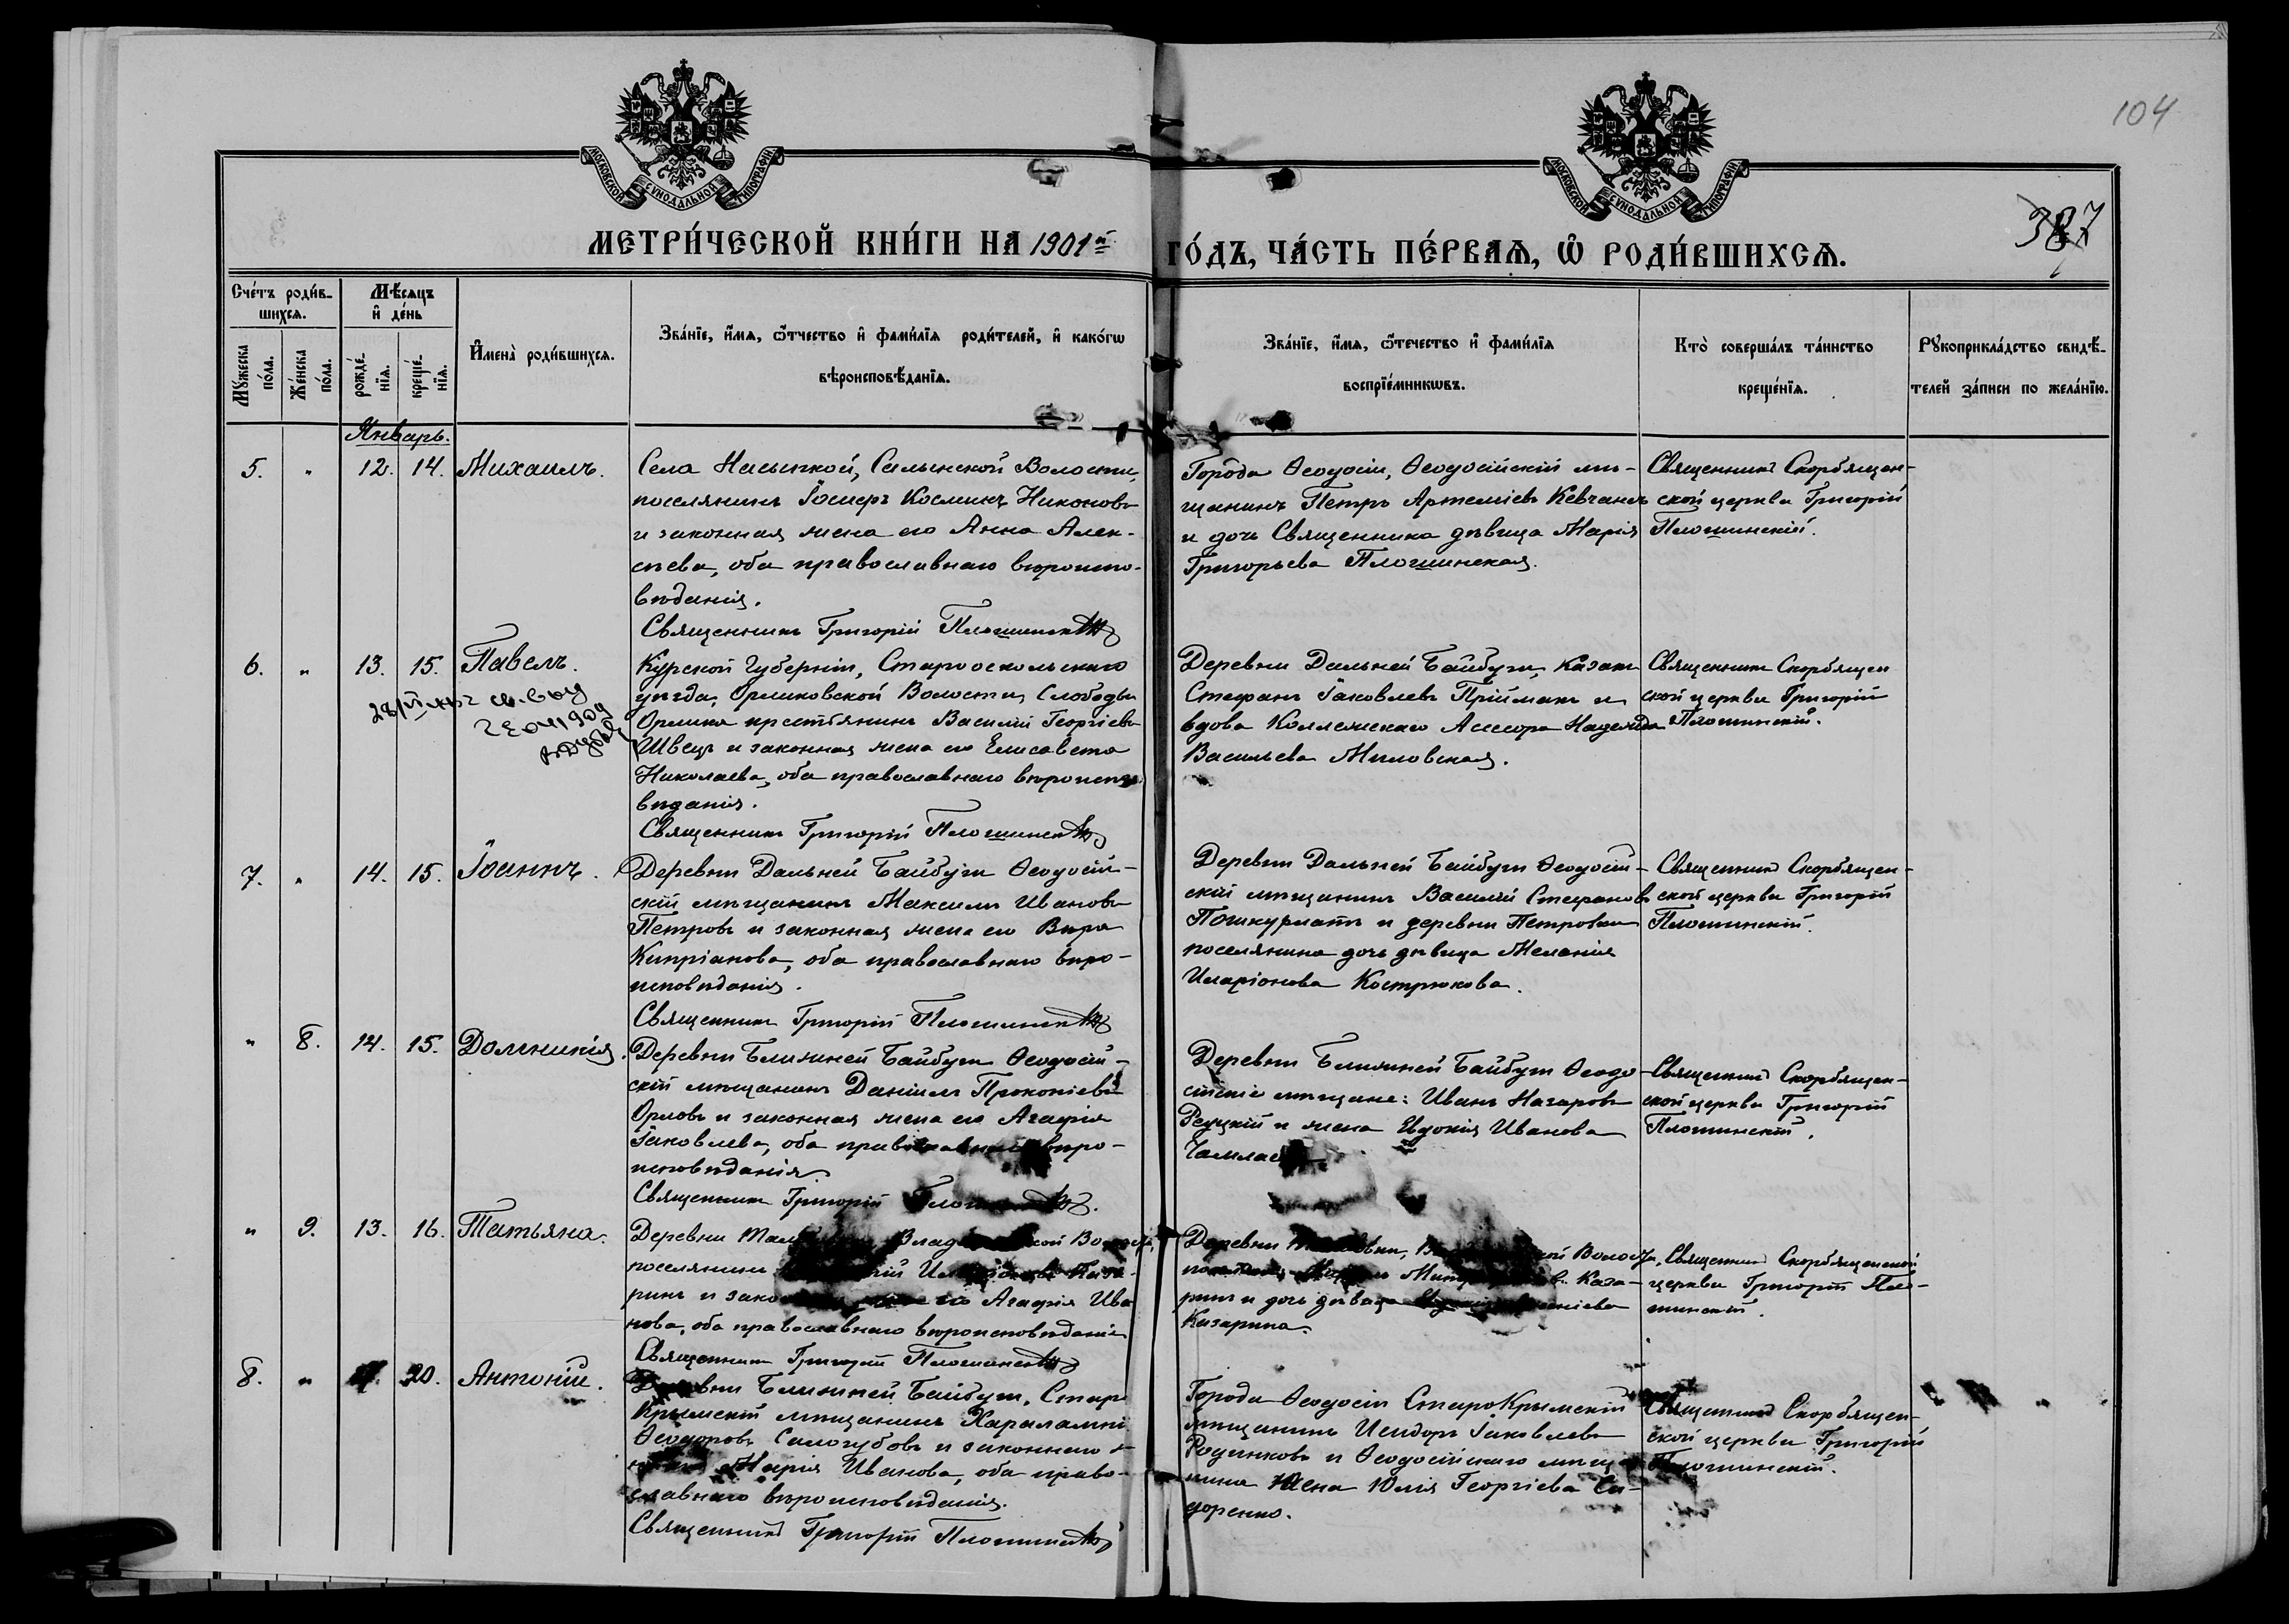 104
387
МОСКОВСКОЙ СѴНОДАЛЬНОЙ ТИПОГРАФІИ.
МОСКОВСКОЙ СѴНОДАЛЬНОЙ ТИПОГРАФІИ.
МЕТРИ́ЧЕСКОЙ КНИ́ГИ НА 1901й ГО́ДЪ, ЧА́СТЬ ПЕ́РВАѦ, Ѡ РОДИ́ВШИХСѦ.
Сче́тъ роди́в-
шихсѧ.
Мꙋжеска по́ла.
Же́нска по́ла.
Мѣ́сѧцъ
и де́нь
рожде́-
нїѧ.
креще́-
нїѧ.
И҆мена̀ роди́вшихсѧ.
Зва́нїе, и҆́мѧ, ѻ҆́тчество и҆ фами́лїѧ роди́телей, и҆ како́гѡ
вѣроисповѣ́данїѧ.
Зва́нїе, и҆́мѧ, ѻ҆те́чество и҆ фами́лїѧ
воспрїе́мникѡвъ.
Кто̀ соверша́лъ та́инство
креще́нїѧ.
Рꙋкоприкла́дство свидѣ́-
телей за́писи по жела́нїю.
Январь.
5. " 12. 14. Михаилъ.
Села Насыпкой, Салынской Волости,
поселянинъ Іосифъ Косминъ Никоновъ
и законная жена его Анна Алек-
сѣева, оба православнаго вѣроиспо-
вѣданія.
Священникъ Григорій Плошинскій
Города Ѳеодосіи, Ѳеодосійскій мѣ-
щанинъ Петръ Артеміевъ Кевчанъ
и дочь Священника дѣвица Марія
Григорьева Плошинская.
Священникъ Скорбящен-
ской церкви Григорій
Плошинскій.
6. " 13. 15. Павелъ.
Курской Губерніи, Старооскольскаго
уѣзда, Орликовской Волости, Слободы
Орлика крестьянинъ Василій Георгіевъ
Швецъ и законная жена его Елисавета
Николаева, оба православнаго вѣроиспо-
вѣданія.
Священникъ Григорій Плошинскій
Деревни Дальней Байбуги, казакъ
Стефанъ Іаковлевъ Прійманъ и
вдова Коллежскаго Асессора Надежда
Васильева Миловская.
Священникъ Скорбящен
ской церкви Григорій
Плошинскій.
7. " 14. 15. Іоаннъ.
Деревни Дальней Байбуги Ѳеодосій-
скій мѣщанинъ Максимъ Ивановъ
Петровъ и законная жена его Вѣра
Кипріанова, оба православнаго вѣро-
исповѣданія.
Священникъ Григорій Плошинскій
Деревни Дальней Байбуги Ѳеодосій-
скій мѣщанинъ Василій Стефановъ
Пошкурлатъ и деревни Петровки
поселянина дочь дѣвица Меланія
Иларіонова Кострюкова.
Священникъ Скорбящен-
ской церкви Григорій
Плошинскій.
" 8. 14. 15. Домникія.
Деревни Ближней Байбуги Ѳеодосій-
скій мѣщанинъ Даніилъ Прокопіевъ
Орловъ и законная жена его Агафія
Іаковлева, оба православнаго вѣро-
исповѣданія.
Священникъ Григорій Плошинскій.
Деревни Ближней Байбуги Ѳеодо-
сійскіе мѣщане: Иванъ Назаровъ
Рецкій и жена Евдокія Иванова
Священникъ Скорбящен-
ской церкви Григорій
Плошинскій.
" 9. 13. 16. Татьяна.
Деревни Волости,
поселянинъ
ринъ и законная жена его Агафія Ива
нова, оба православнаго вѣроисповѣданія
Священникъ Григорій Плошинскій
Деревни Волости,
Каза-
ринъ и дочь дѣвица
Казарина.
Священникъ Скорбященской
церкви Григорій Пло-
шинскій.
8. " 20. Антоній.
Деревни Ближней Байбуги, Старо
Крымскій мѣщанинъ Харалампій
Ѳеодоровъ Сологубовъ и законная
Марія Иванова, оба право-
славнаго вѣроисповѣданія.
Священникъ Григорій Плошинскій
Города Ѳеодосіи СтароКрымскій
мѣщанинъ Исидоръ Іаковлевъ
Родинковъ и Ѳеодосійскаго мѣща
нина жена Юлія Георгіева Си-
доренко.
Священникъ Скорбящен-
ской церкви Григорій
Плошинскій.